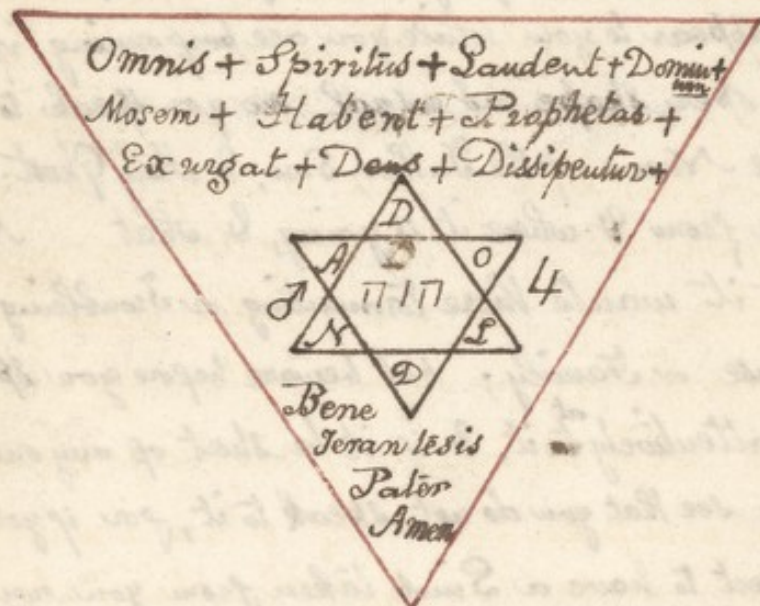 Omnis + Spiritus + Laudent + Domin+
um
Mosem + Habent + Prophetas +
Exurgat + Deus + Dissipentur+
D
A O
♂ הוה 4
N L
D
Bene
Jeran tēsis
Patēr
Amen